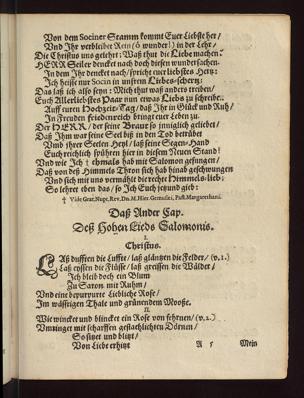 Von dem Sociner Stamm kommt Euer Liebste her/
Und Ihr verbleibet Rein (ô wunder!) in der Lehr/
Die Christus uns gelehrt: Waß thut die Liebe machen?
HERR Seiler dencket nach doch diesen wundersachen.
In dem Ihr dencket nach/ spricht euer liebstes Hertz:
Ich heisse nur Socin in unserm Liebes-schertz:
Das laß ich also seyn: Mich thut was anders treiben/
Euch Allerliebstes Paar nun etwas Liebs zu schreiben.
Auff euren Hochzeits-Tag/ daß Ihr in Glück und Ruh/
In Freuden friedenreich bringt euer Leben zu.
Der HERR/ der seine Braut so inniglich geliebet/
Daß Ihm war seine Seel biß in den Tod betrübet
Umb ihrer Seelen Heyl/ laß seine Segen-Hand
Euch reichlich sprühen hier in diesem Neuen Stand!
Und wie Ich † ehmals hab mit Salomon gesungen/
Daß von deß Himmels Thron sich hab hinab geschwungen
Und sich mit uns vermählte die rechte Himmels-lieb:
So lehret eben das/ so Ich Euch jetzund gieb:
† Vide Grat. Nupt. Rev. Dn. M. Hier. Gemusei, Past. Margarethani.
Daß Ander Cap.
Deß Hohen Lieds Salomonis.
I.
Christus.
Laß dufften die Luffte/ laß gläntzen die Felder/ (v.1.)
Laß eyssen die Flüsse/ laß greissen die Wälder/
Ich bleib doch ein Blum
Zu Saron mit Ruhm/
Und eine bepurpurte Liebliche Rose/
Im wässrigen Thale und grünendem Moose.
II.
Wie wincket und blincket ein Rose von fehrnen/ (v.2.)
Umringet mit scharffen gestachlichten Dörnen/
So sitzet und blitzt/
Von Liebe erhitzt
A 5
Mein